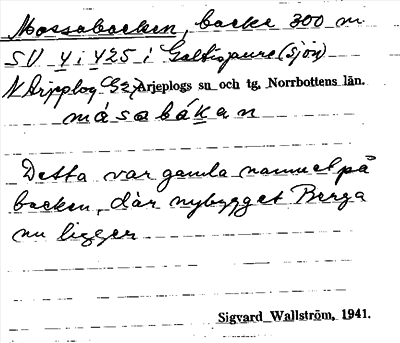 Mossabacken, backe 300 m
SV. y i 425 i Galtispure (sjön)
N Arjeplog Arjeplogs sn och tg, Norrbottens län.
måsabákan
Detta var gamla namnet på
backen, där nybygget Berga
nu ligger
Sigvard Wallström, 1941.